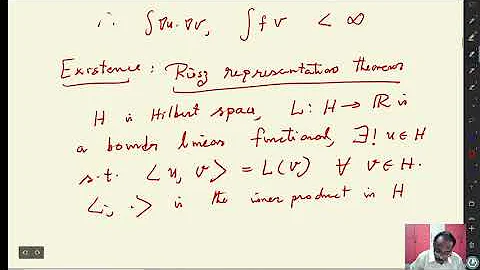 ∴ ∫∇u·∇v, ∫fv < ∞
Existence : Riesz representation theorem
H is Hilbert space, L: H → ℝ is
a bounded linear functional, ∃! u ∈ H
s.t. <u, v> = L(v) ∀ v ∈ H.
<·, ·> is the inner product in H